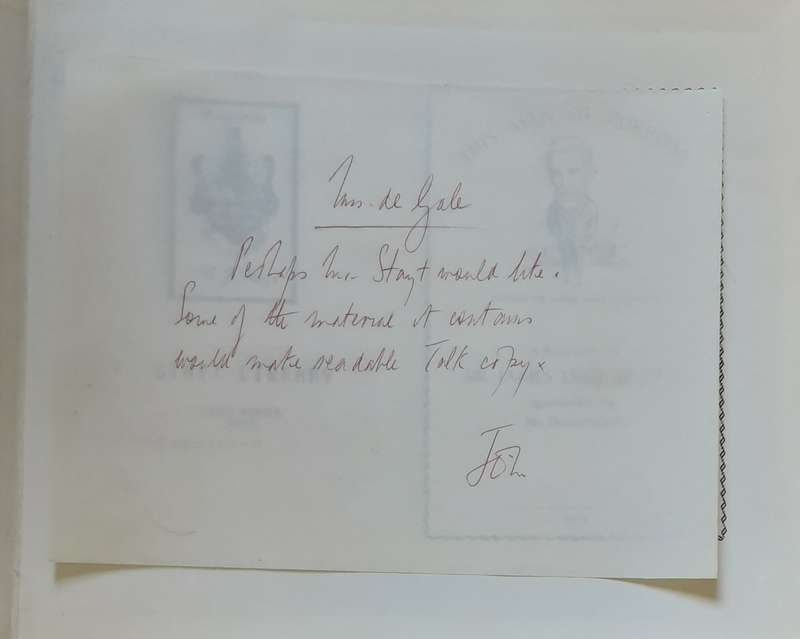 Mrs. de Gale
Perhaps Mr Stayt would like.
Some of the material it contains
would make readable Talk copy.
John
LIBRARY